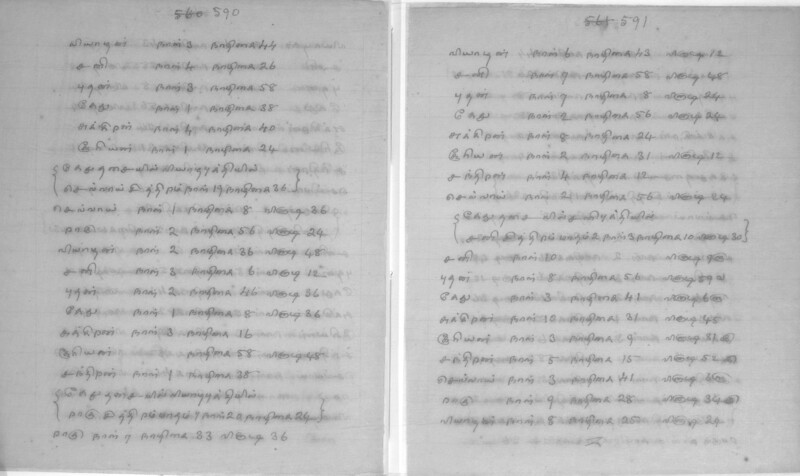 560 590
வியாழன் நாள் 3 நாழிகை 44
சனி நாள் 4 நாழிகை 26
புதன் நாள் 3 நாழிகை 58
கேது நாள் 1 நாழிகை 38
சுக்கிரன் நாள் 4 நாழிகை 40
சூரியன் நாள் 1 நாழிகை 24
கேதுதசையில்
செவ்வாய் நாள் 19 நாழிகை 36
செவ்வாய் நாள் 1 நாழிகை 8 விகடி 36
ராகு நாள் 2 நாழிகை 56 விகடி 24
வியாழன் நாள் 2 நாழிகை 36 விகடி 48
சனி நாள் 3 நாழிகை 6 விகடி 12
புதன் நாள் 2 நாழிகை 46 விகடி 36
கேது நாள் 1 நாழிகை 8 விகடி 36
சுக்கிரன் நாள் 3 நாழிகை 16
சூரியன் நாழிகை 58 விகடி 48
சந்திரன் நாள் 1 நாழிகை 38
கேதுதசையில்
ராகு நாழிகை 24
ராகு நாள் 7 நாழிகை 33 விகடி 36
561 591
வியாழன் நாள் 6 நாழிகை 43 விகடி 12
சனி நாள் 7 நாழிகை 58 விகடி 48
புதன் நாள் 7 நாழிகை 8 விகடி 24
கேது நாள் 2 நாழிகை 56 விகடி 24
சுக்கிரன் நாள் 8 நாழிகை 24
சூரியன் நாள் 2 நாழிகை 31 விகடி 12
சந்திரன் நாள் 4 நாழிகை 12
செவ்வாய் நாள் 2 நாழிகை 56 விகடி 24
கேதுதசையில்
சனி நாள் 3 நாழிகை 10 விகடி 30
சனி நாள் 10 விகடி
புதன் நாள் 8 நாழிகை 56 விகடி
கேது நாள் 3 நாழிகை 41 விகடி
சுக்கிரன் நாள் 10 நாழிகை 31 விகடி
சூரியன் நாள் 3 நாழிகை 9 விகடி
சந்திரன் நாள் 5 நாழிகை 15 விகடி
செவ்வாய் நாள் 3 நாழிகை 41 விகடி
ராகு நாள் 9 நாழிகை 28 விகடி
வியாழன் நாள் 8 நாழிகை 25 விகடி